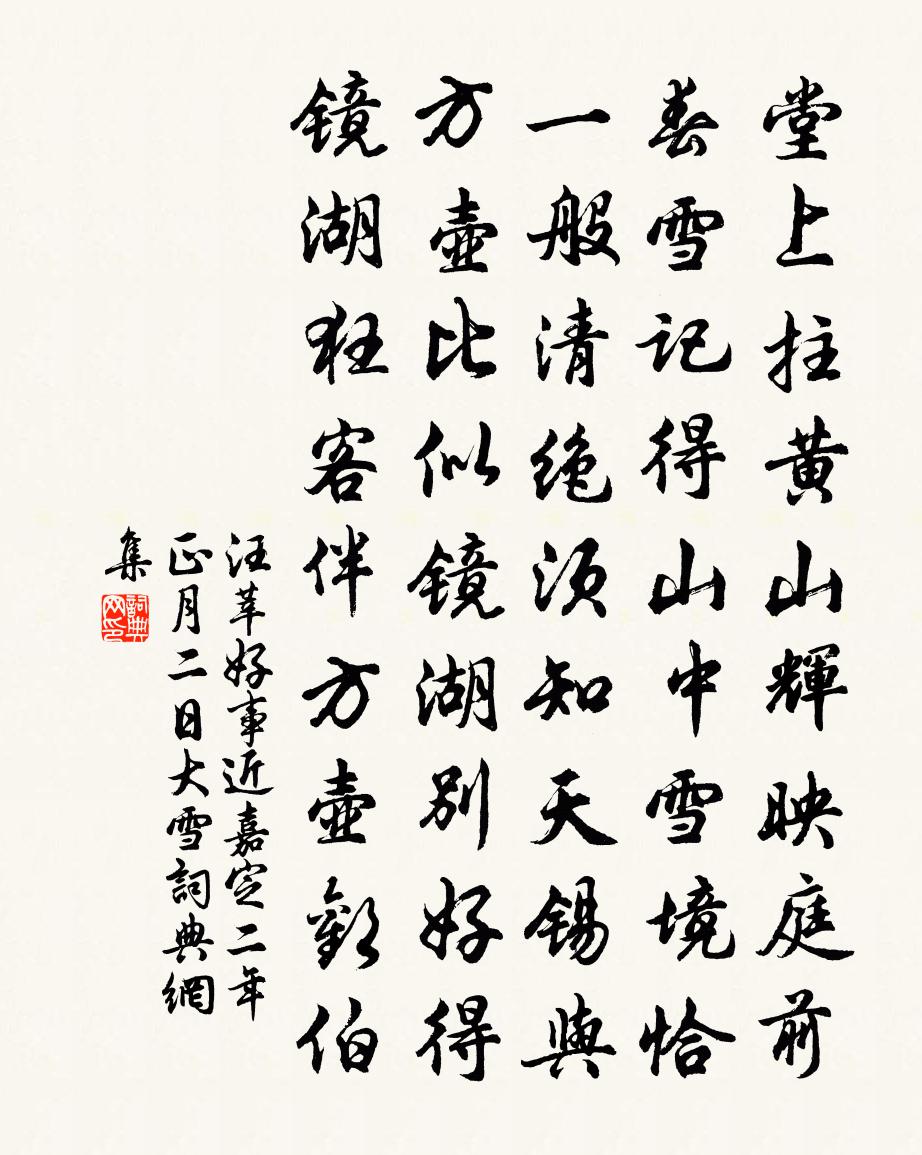 堂上拄黄山輝映庭前
春雪記得山中雪境恰
一般清绝须知天锡與
方壺比似镜湖别好得
镜湖狂客伴方壺歡伯
汪莘好事近嘉定二年
正月二日大雪詞典網
集
詞典
网印